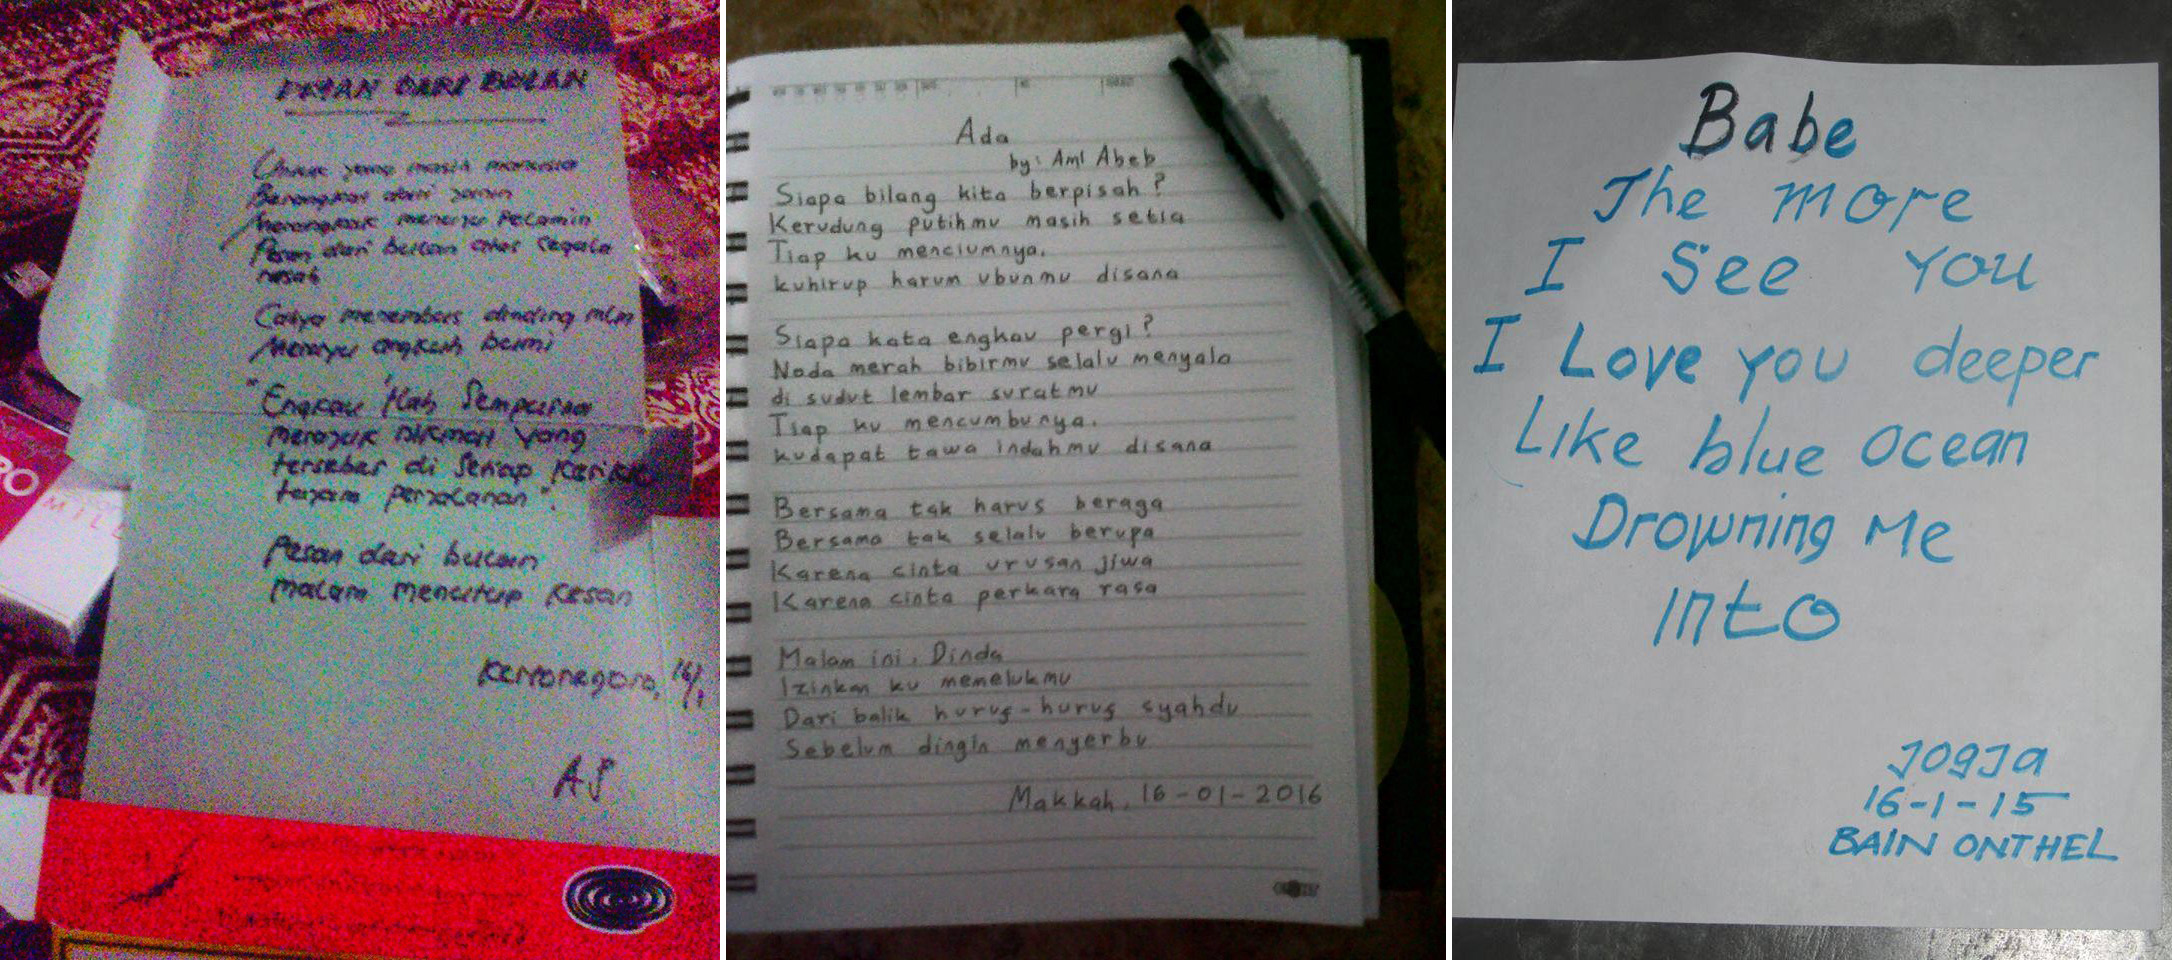 PESAN DARI BULAN
Untuk yang masih manusia
Berangkat dari
Merangkak menuju pelamin
Pesan dari bulan atas segala
Cahya menembus dinding mlm
Merayu angkuh bumi
"Engkau Kah Sempurna
merajuk nikmat yang
tersebar di setiap
perjalanan".
Pesan dari bulan
malam menutup kesan
Kertonegoro, 16/1
A.J
RO
MILD
Ada
by: Aml Abeb
Siapa bilang kita berpisah?
Kerudung putihmu masih setia
Tiap ku menciumnya.
kuhirup harum ubunmu disana
Siapa kata engkau pergi?
Noda merah bibirmu selalu menyala
di sudut lembar suratmu
Tiap ku mencumbunya.
kudapat tawa indahmu disana
Bersama tak harus beraga
Bersama tak selalu berupa
Karena cinta urusan jiwa
Karena cinta perkara rasa
Malam ini, Dinda
Izinkan ku memelukmu
Dari balik hurus-hurus syahdu
Sebelum dingin menyerbu
Makkah, 16-01-2016
Babe
The more
I See You
I Love you deeper
Like blue Ocean
Drowning Me
Into
JOGJA
16-1-15
BAIN ONTHEL